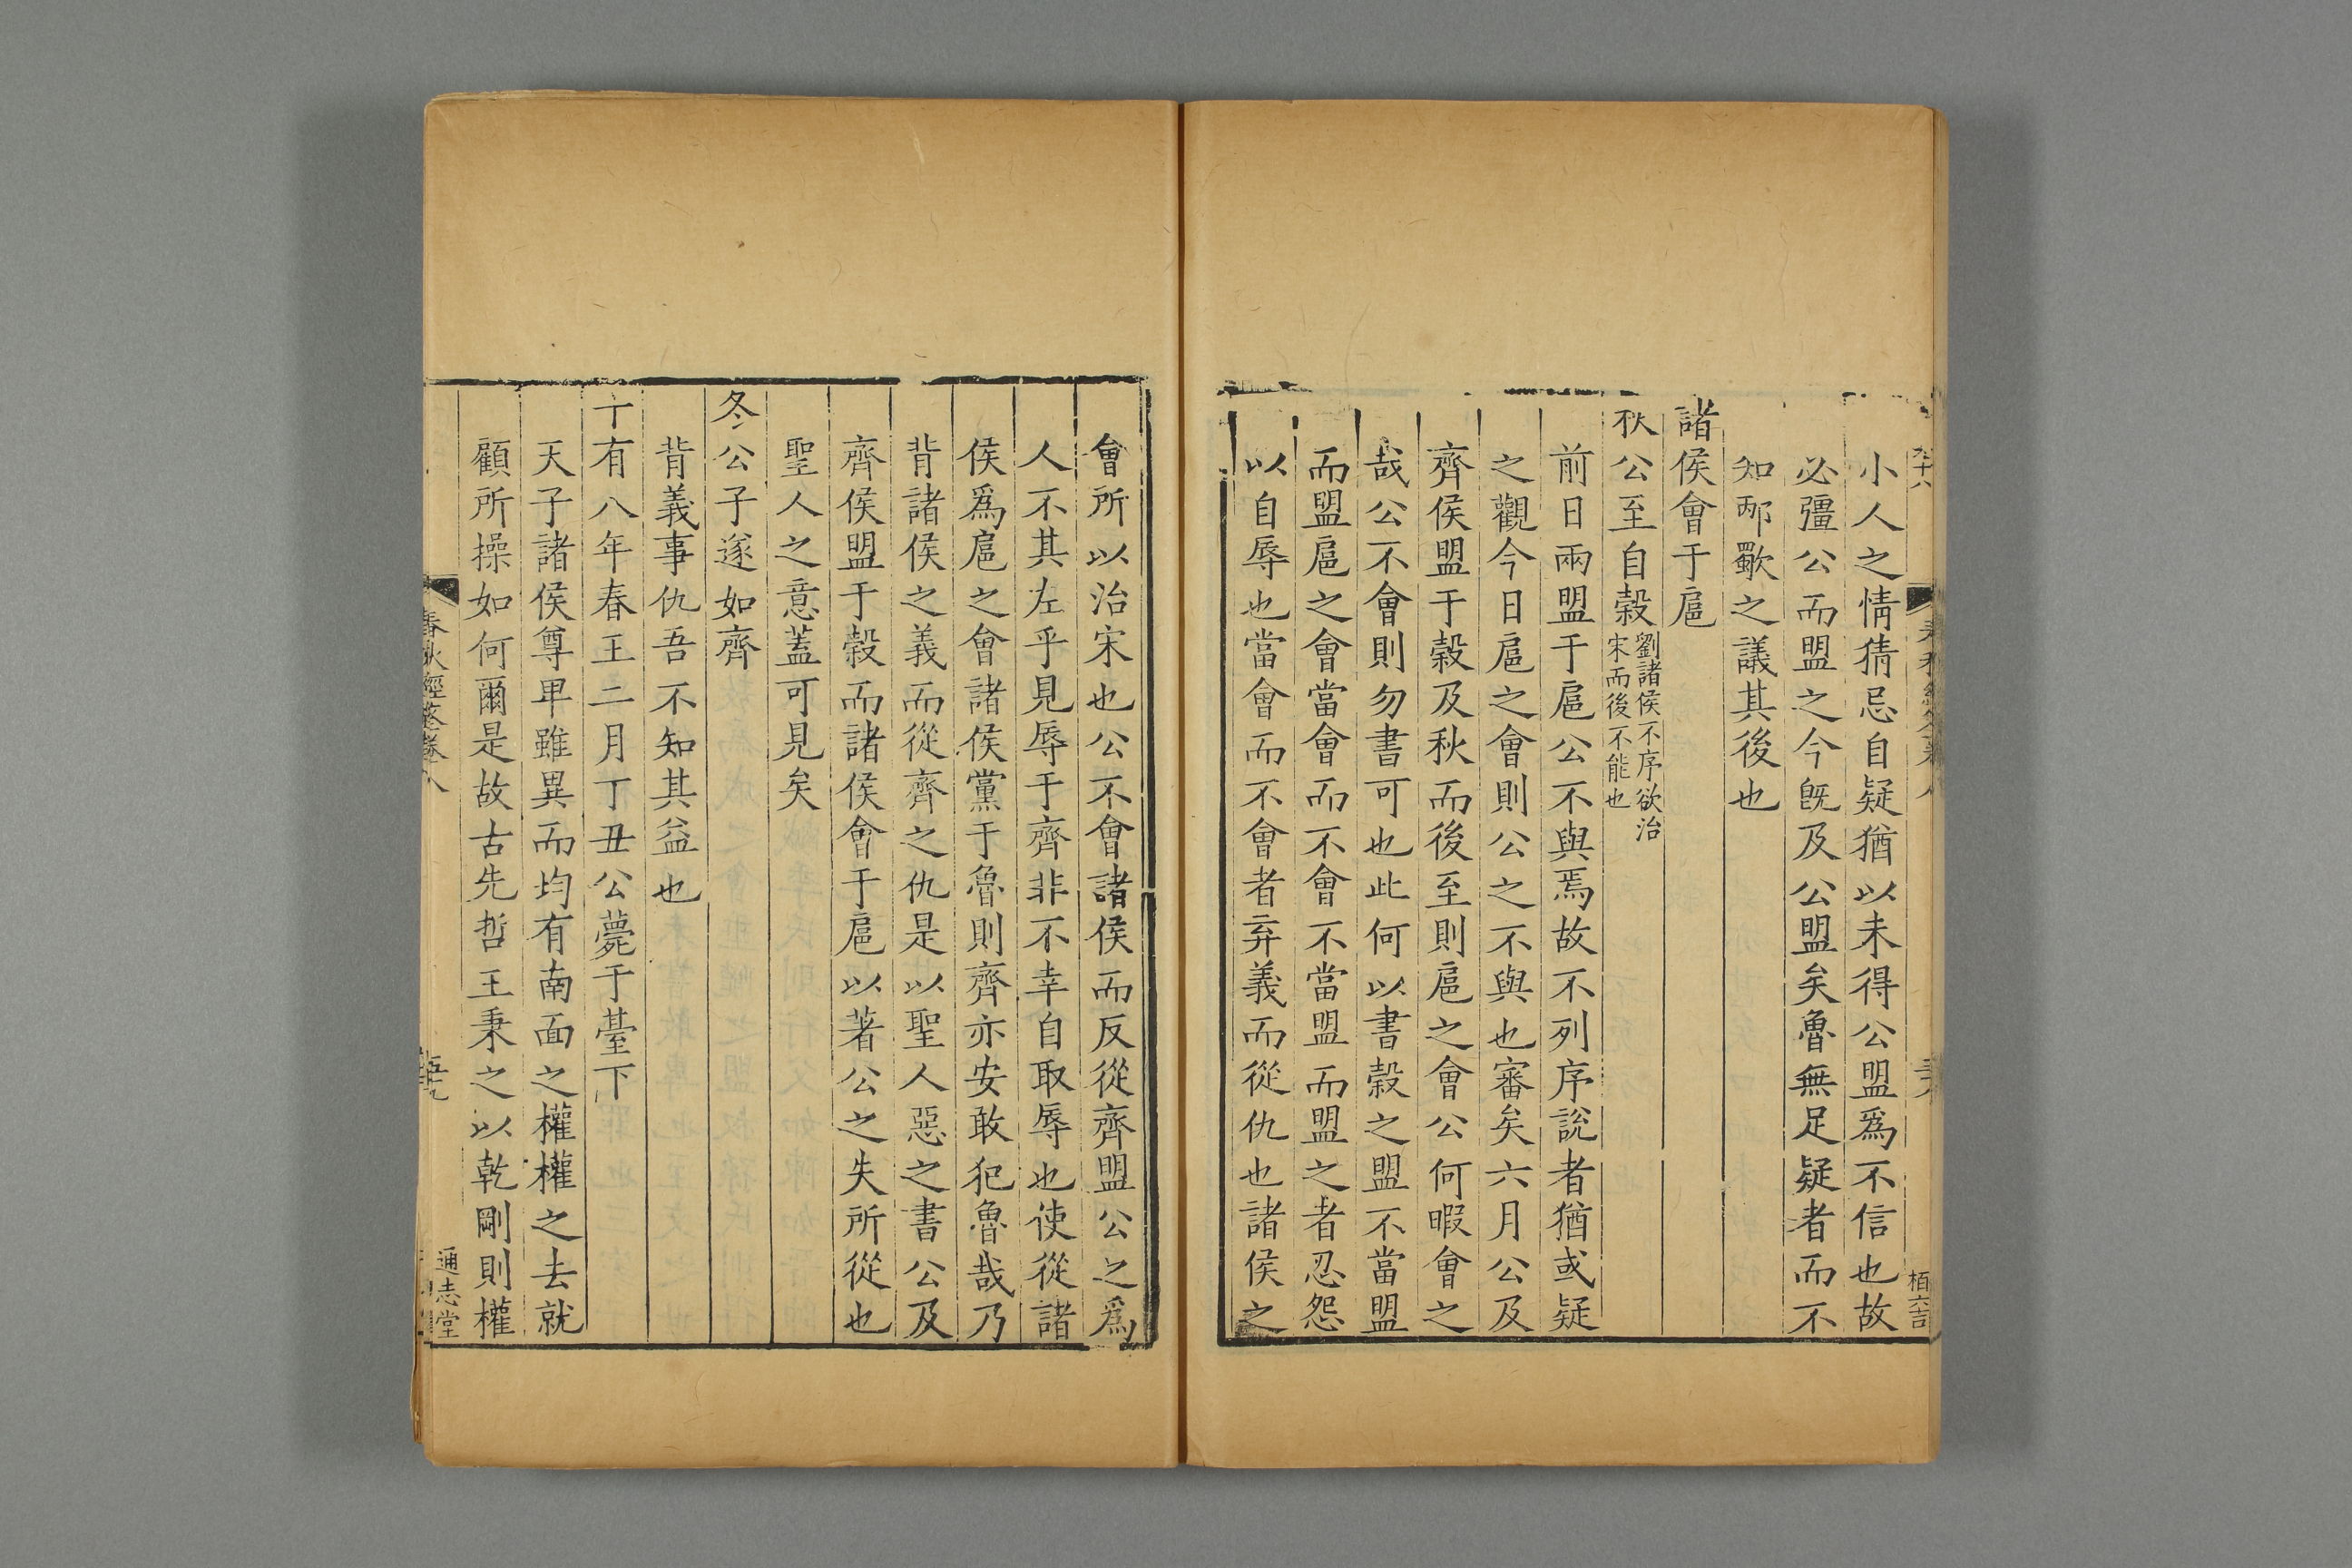 小人之情猜忌自疑猶以未得公盟爲不信也故
必彊公而盟之今旣及公盟矣魯無足疑者而不
知邴歜之議其後也
諸侯會于扈
秋公至自穀
劉諸侯不序欲治
宋而後不能也
前日兩盟于扈公不與焉故不列序說者猶或疑
之觀今日扈之會則公之不與也審矣六月公及
齊侯盟于穀及秋而後至則扈之會公何暇會之
哉公不會則勿書可也此何以書穀之盟不當盟
而盟扈之會當會而不會不當盟而盟之者忍怨
以自辱也當會而不會者弃義而從仇也諸侯之
會所以治宋也公不會諸侯而反從齊盟公之爲
人不其左乎見辱于齊非不幸自取辱也使從諸
侯爲扈之會諸侯黨于魯則齊亦安敢犯魯哉乃
背諸侯之義而從齊之仇是以聖人惡之書公及
齊侯盟于穀而諸侯會于扈以著公之失所從也
聖人之意蓋可見矣
冬公子遂如齊
背義事仇吾不知其益也
十有八年春王二月丁丑公薨于臺下
天子諸侯尊卑雖異而均有南面之權權之去就
顧所操如何爾是故古先哲王秉之以乾剛則權
春秋經筌卷八
通志堂